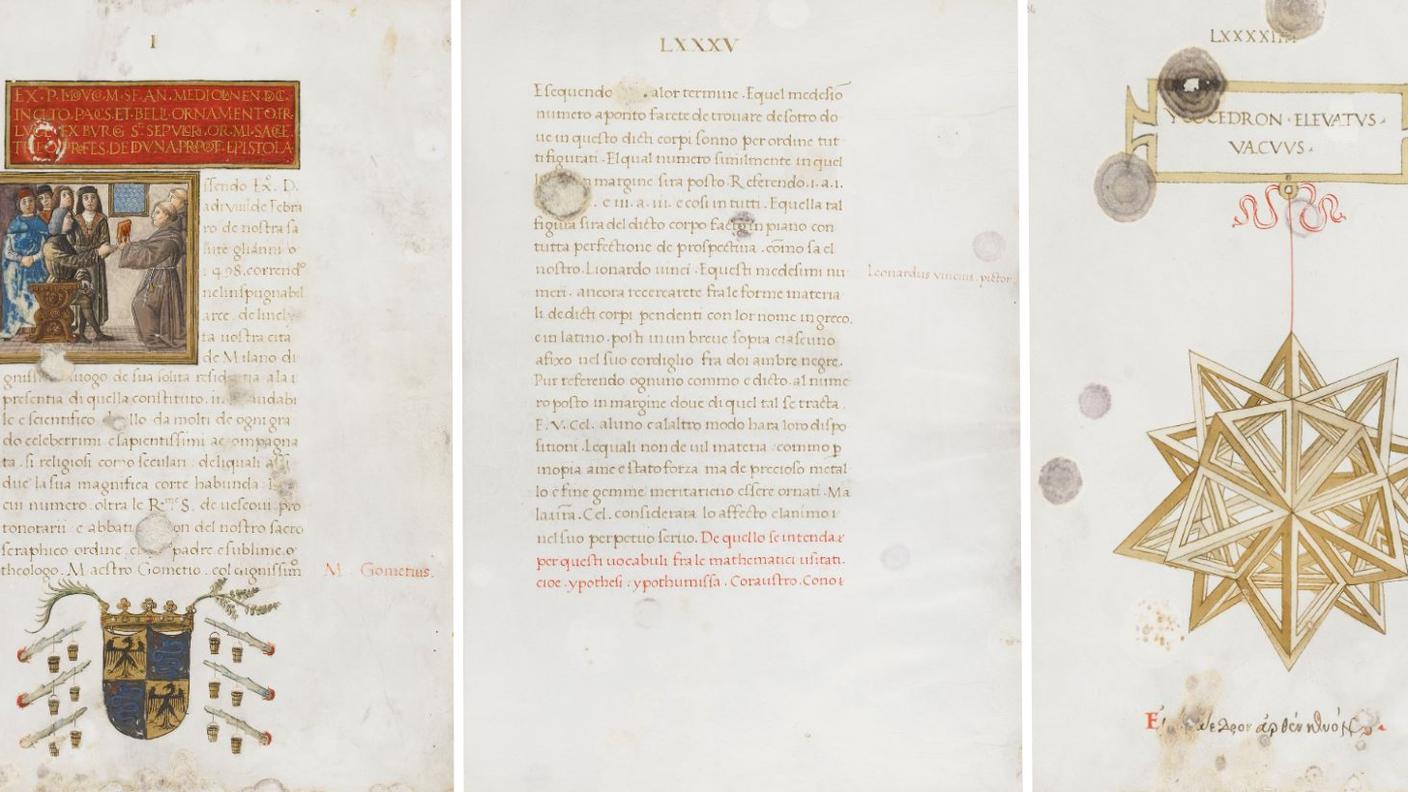 I
EX . P. LDVCO. M. SF. AN. MEDIOLANEN. DC.
INCLITO . PACS . ET . BELL . ORNAMENTO . FR.
EX BVRG S. SEPVLCRI . OR. MI. SACE.
PFES. DE DVNA. PRPOT. EPISTOLA
ssendo Ex. D.
adi viiii. de Febra
ro de nostra sa
lute gliánni
correndo
nelinspugnabil
arce. de linclv
ta uostra cita
de Milano di
luogo de sua solita ala
presentia di quella constituto.
le e scientifico da molti de ogni gra
do celeberrimi e sapientissimi acompagna
ta . si religiosi como seculari : deliquali
due la sua magnifica corte habunda.
cui numero. oltra le de uescoui. pro
tonotarii e abbati del nostro sacro
seraphico ordine. padre e sublime.
theologo . Maestro Gometio . col dignissim
M. Gometius.
LXXXV
E sequendo alor termine . E quel medesio
numero aponto farete de trouare de sotto do
ue in questo dicti corpi sonno per ordine tut
ti figurati . El qual numero similmente in quel
margine sira posto . Referendo . i . a . i .
. e iii. a . iii . e cosi in tutti . E quella tal
figura sira del dicto corpo facto in piano con
tutta perfectione de prospectiua . cõmo sa el
nostro. Lionardo uinci . E questi medesimi nu
meri . ancora recercarete fra le forme materia
li de dicti corpi pendenti con lor nome in greco.
e in latino. posti in un breue sopra ciascuno
afixo nel suo cordiglio fra doi ambre negre.
Pur referendo ognuno commo e dicto. al nume
ro posto in margine doue di quel tal se tracta.
E . V. Cel. aluno e alaltro modo hara loro dispo
sitioni . Le quali non de uil materia : commo p
inopia a me e stato forza ma de precioso metal
lo e fine gemme meritarieno essere ornati . Ma
la ura. Cel. considerara lo affecto e lanimo i
nel suo perpetuo seruo. De quello se intenda
per questi uocabuli fra le mathematici usitati.
cioe . ypothesi : ypothumissa . Coraustro . Cono
Leonardus vincius . pictor
LXXXXIIII
YCOCEDRON · ELEVATVS ·
VACVVS ·